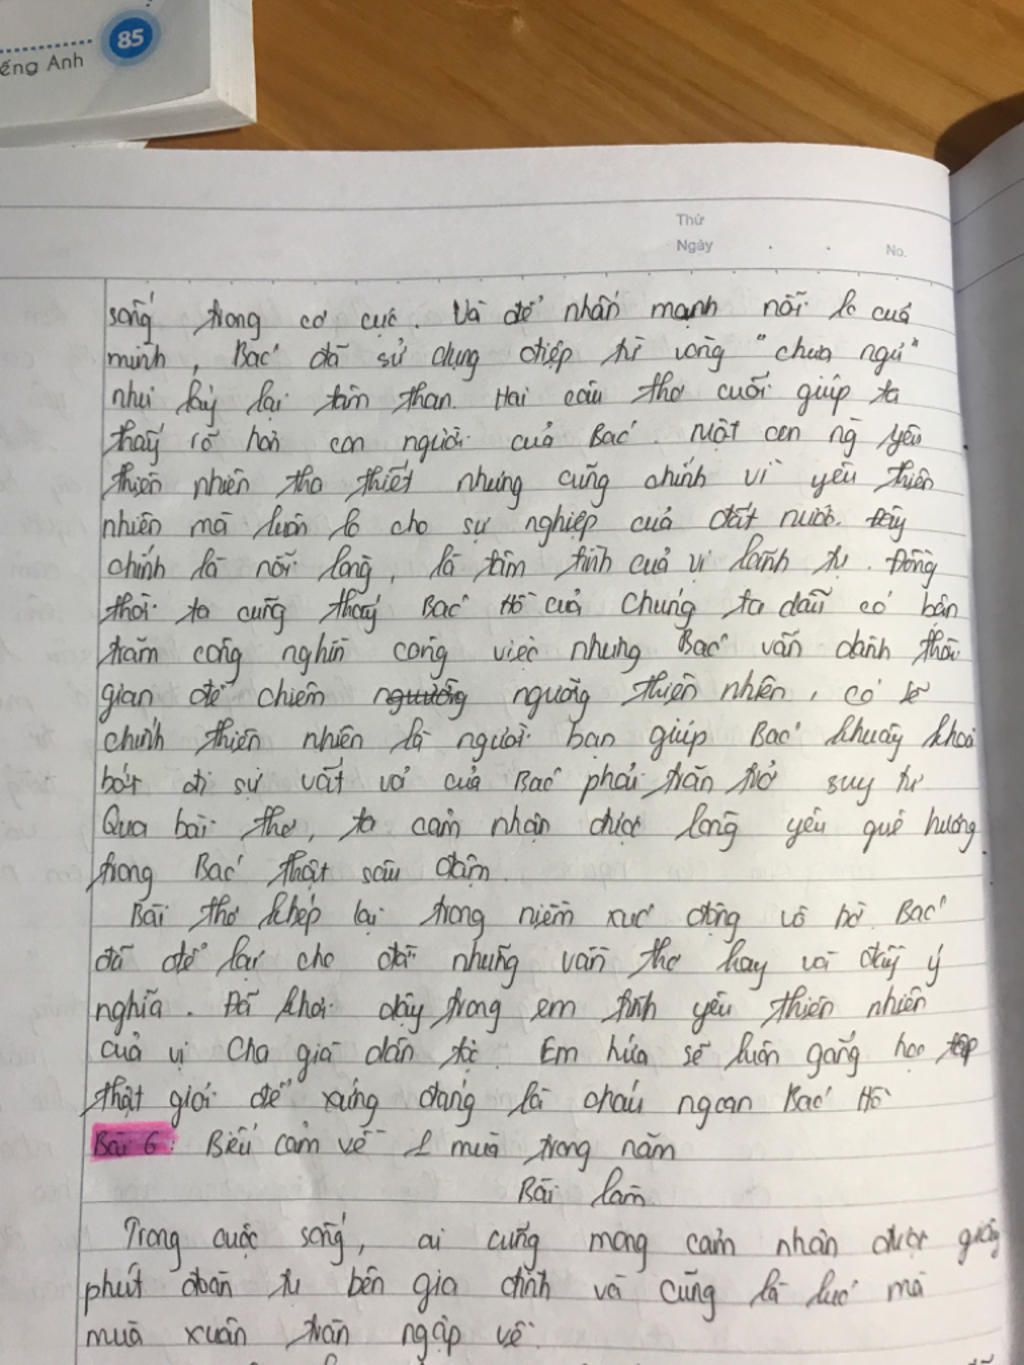 85
ếng Anh
Thứ
Ngày
No.
sống trong cơ cực. Và để nhấn mạnh nỗi lo của
mình, Bác đã sử dụng điệp từ vòng "chưa ngủ"
như láy lại tâm than. Hai câu thơ cuối giúp ta
thấy rõ hơn con người của Bác. Một con ng yêu
thiên nhiên tha thiết nhưng cũng chính vì yêu thiên
nhiên mà luôn lo cho sự nghiệp của đất nước. Đây
chính là nỗi lòng, là tâm tình của vị lãnh tụ. Đồng
thời ta cũng thấy Bác Hồ của chúng ta dẫu có bận
trăm công nghìn công việc nhưng Bác vẫn dành thời
gian để chiêm ngưỡng thiên nhiên, có lẽ
chính thiên nhiên là người bạn giúp Bác khuây khoả
bớt đi sự vất vả của Bác phải trăn trở suy tư
Qua bài thơ, ta cảm nhận được lòng yêu quê hương
trong Bác thật sâu đậm.
Bài thơ khép lại trong niềm xúc động vô bờ. Bác
đã để lại cho đời những vần thơ hay và đầy ý
nghĩa. Đã khơi dậy trong em tình yêu thiên nhiên
của vị Cha già dân tộc. Em hứa sẽ luôn gắng học tập
thật giỏi để xứng đáng là cháu ngoan Bác Hồ
Bài 6: Biểu cảm về 1 mùa trong năm
Bài làm
Trong cuộc sống, ai cũng mong cảm nhận được giây
phút đoàn tụ bên gia đình và cũng là lúc mà
mùa xuân tràn ngập về.